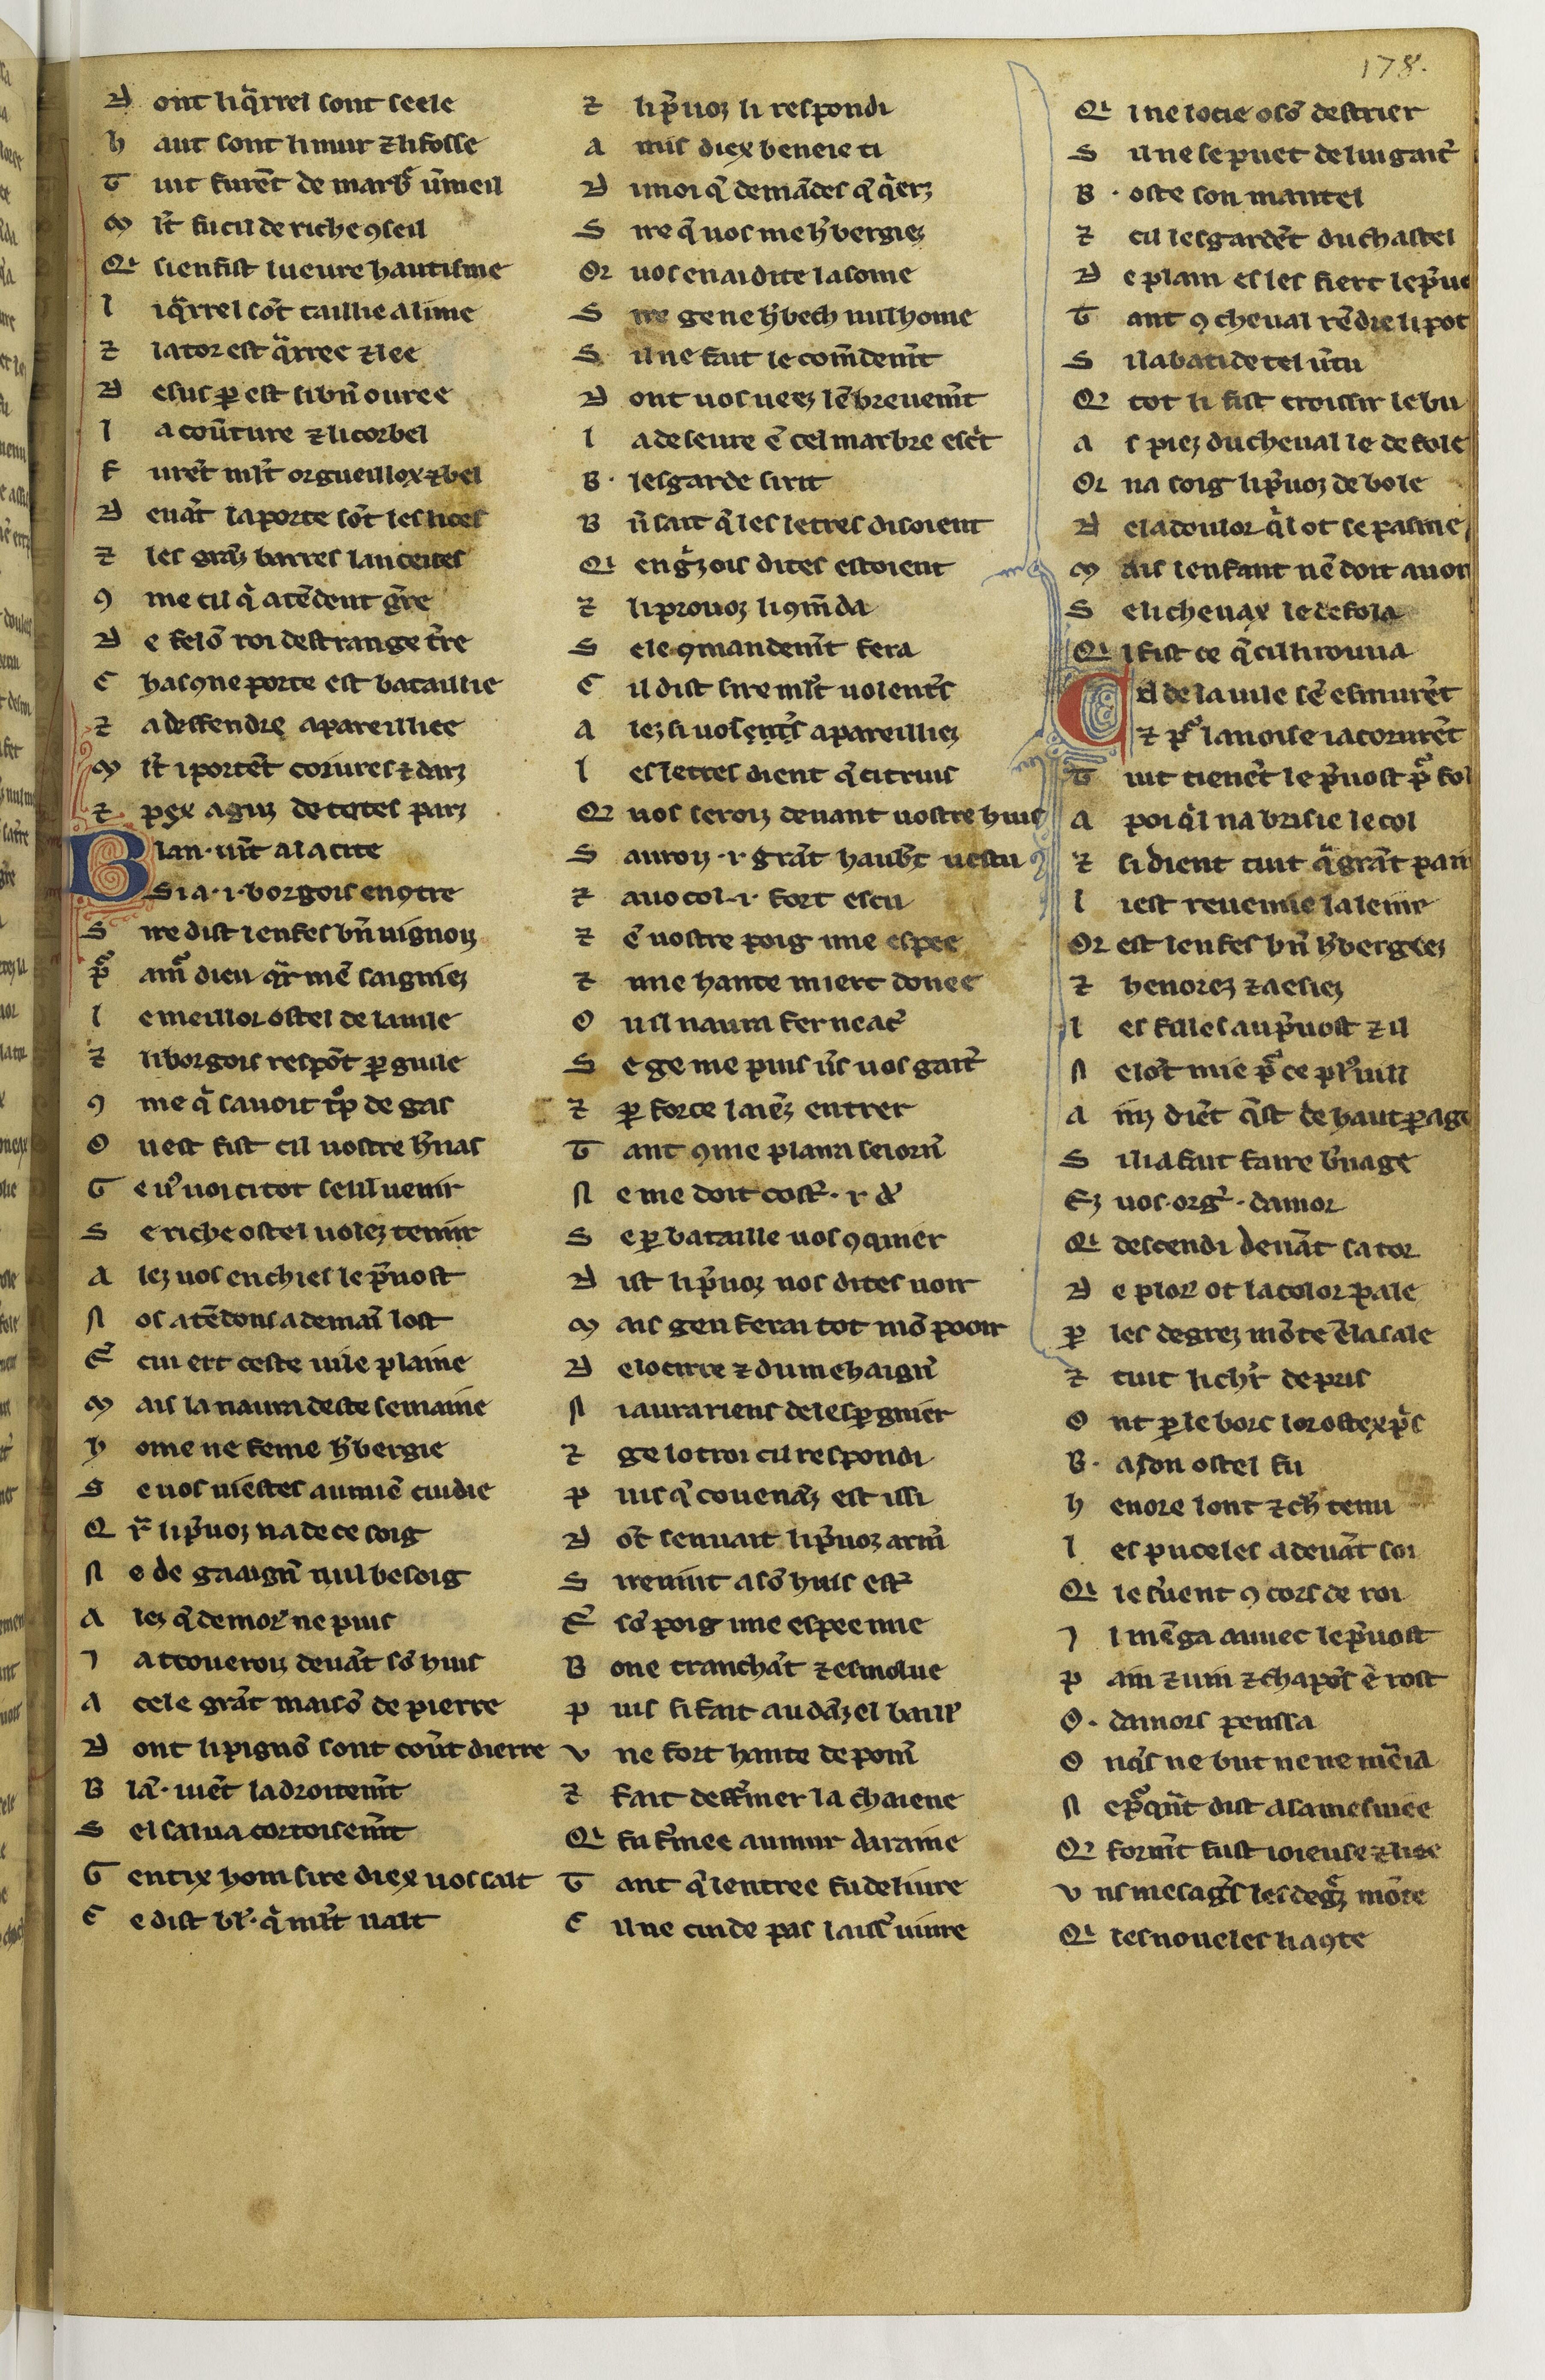 178.
D ont li q̃rrel sont seele
h aut sont li mur ⁊ li fosse
T uit furẽt de marbr̃ ṽmeil
M lt̃ fu cil de riche ꝯseil
Qi sien fist lueure hautisme
l i q̃rrel sõt taillie a lime
⁊ la tor est q̃rree ⁊ lee
D esus ꝑ est si bñ ouree
l a coũture ⁊ li corbel
F urẽt mlt̃ orgueillox ⁊ bel
D euãt la porte sõt les lices
⁊ les grãz barres lanceices
ꝯ me cil qͥ atẽdent gr̃re
D e felõ roi destrange tr̃re
C hasꝯne porte est bataillie
⁊ a deffendre apareillice
M lt̃ i portẽt coriures ⁊ darz
⁊ pex aguz de totes parz
B lan. uĩt a la cite
Si a .i. borgois enꝯtre
S ire dist lenfes bñ uignoiz
ꝓ amͬ dieu qr̃ mẽ saigniez
l e meillor ostel de la uile
⁊ li borgois respõt ꝑ guile
ꝯ me qͥ sauoit tͦp de gas
O u est fist cil uostre h̃nas
G e uͦ uoi ci tot seul uenir
S e riche ostel uolez tenir
A lez uos en chies le p̃uost
N os atẽdons a demaĩ lost
Ẽ cui ert ceste uile plaine
M ais la naura deste semaine
h ome ne feme h̃bergie
S e uos niestes au miẽ cuidie
Q r̃ li p̃uoz na de ce soig
N e de gaaignͬ nul besoig
A lez q̃ demorͬ ne puis
⁊ a trouerois deuãt sõ huis
A cele grãt maisõ de pierre
D ont li pignõ sont coũt dierre
B lã. uiẽt la droitem̃t
S el salua cortoisem̃t
G entix hom sire diex uos salt
C e dist bl̃. qͥ mlt̃ ualt
⁊ li p̃uoz li respondi
A mis diex beneie ti
D i moi q̃ demãdes q̃ q̃ers
S ire q̃ uos me h̃bergiez
Or uos en ai dite la some
S ire ge ne h̃berch nul home
S il ne fait le com̃dem̃t
D ont uos ueez lẽbreuem̃t
l a deseure ẽ cel marbre escͥt
B. lesgarde si rit
B ñ sait q̃ les letres disoient
Qi engͣzois dites estoient
⁊ li prouoz li ꝯm̃da
S e le ꝯmandem̃t fera
C il dist sire mlt̃ uolentͬs
A lez si uos ent̃s apareilliez
l es letres dient q̃ ci truis
Qe uos seroiz deuant uostre huis
S auroiz .i. grãt haub̃c uestu
⁊ a uo col .i. fort escu
⁊ ẽ uostre poig une espee
⁊ une hante miert donee
O u il naura fer ne acͬ
S e ge me puis ũs uos gaitͬ
⁊ ꝑ force laiẽz entrer
T ant ꝯme plaira seiornͬ
N e me doit costͬ .i. dͬ
S e ꝑ bataille uos ꝯquier
D ist li p̃uoz uos dites uoir
M ais gen ferai tot mõ pooir
D e locirre ⁊ du mehaignͬ
N i aura riens de lesꝑgnier
⁊ ge lotroi cil respondi
P uis q̃ couenãz est issi
D õt senuait li p̃uoz armͬ
S ire uint a sõ huis estͬ
Ẽ sõ poig une espee nue
B one tranchãt ⁊ esmolue
P uis si fait au dãzel baillͬ
V ne fort hante de pomͬ
⁊ fait deffͬmer la chaiene
Qi fu fͬmee au mur daraine
T ant q̃ lentree fu deliure
C il ne cuide pas laissͬ uiure
Qi ine locie o sõ destrier
S il ne se puet de lui gaitͬ
B. oste son mantel
⁊ cil lesgardẽt du chastel
D e plain es les fiert le p̃uo
T ant ꝯ cheual rẽdre li pot
S il abati de tel ũtu
Qe tot li fist croissir le bu
A s piez du cheual le defole
Or na soig li p̃uoz de bole
D e la doulor qͥl ot se pasme
M ais lenfant nẽ doit auoir
S e li cheuax le defola
Qi l fist ce q̃ cil li rouua
Cil de la uile sẽ esmurẽt
⁊ pͦ la noise i acorurẽt
T uit tienẽt le p̃uost pͦ fol
A poi qͥl na brisie le col
⁊ si dient tuit q̃ grãt pain
l i est reuenue laleine
Or est lenfes bñ h̃bergiez
⁊ henorez ⁊ aesiez
l es filles au p̃uost ⁊ il
N e lõt mie pͦ ce plͬ uill
A inz diẽt q̃st de haut ꝑage
S il i a fait faire b̃nage
Ez uos .orgͬ. damor
Qi descendi deuãt sa tor
D e plorͬ ot la color pale
P les degrez mõte ẽ la sale
⁊ tuit li chr̃ de pris
O nt ꝑ le borc lor ostex pͥs
B. a son ostel fu
h enore lont ⁊ chͬ tenu
l es puceles a deuãt soi
Qi le sͬuent ꝯ cors de roi
⁊ l mẽga auuec le p̃uost
P ain ⁊ uin ⁊ chapõs ẽ rost
O. damors pensa
O nq̃s ne but ne ne mẽia
N e pͦ q̃nt dist a sa mesniee
Qe form̃t fust ioieuse ⁊ liee
V ns mesagͬs les degrͣz mõte
Qi tes noueles li aꝯte